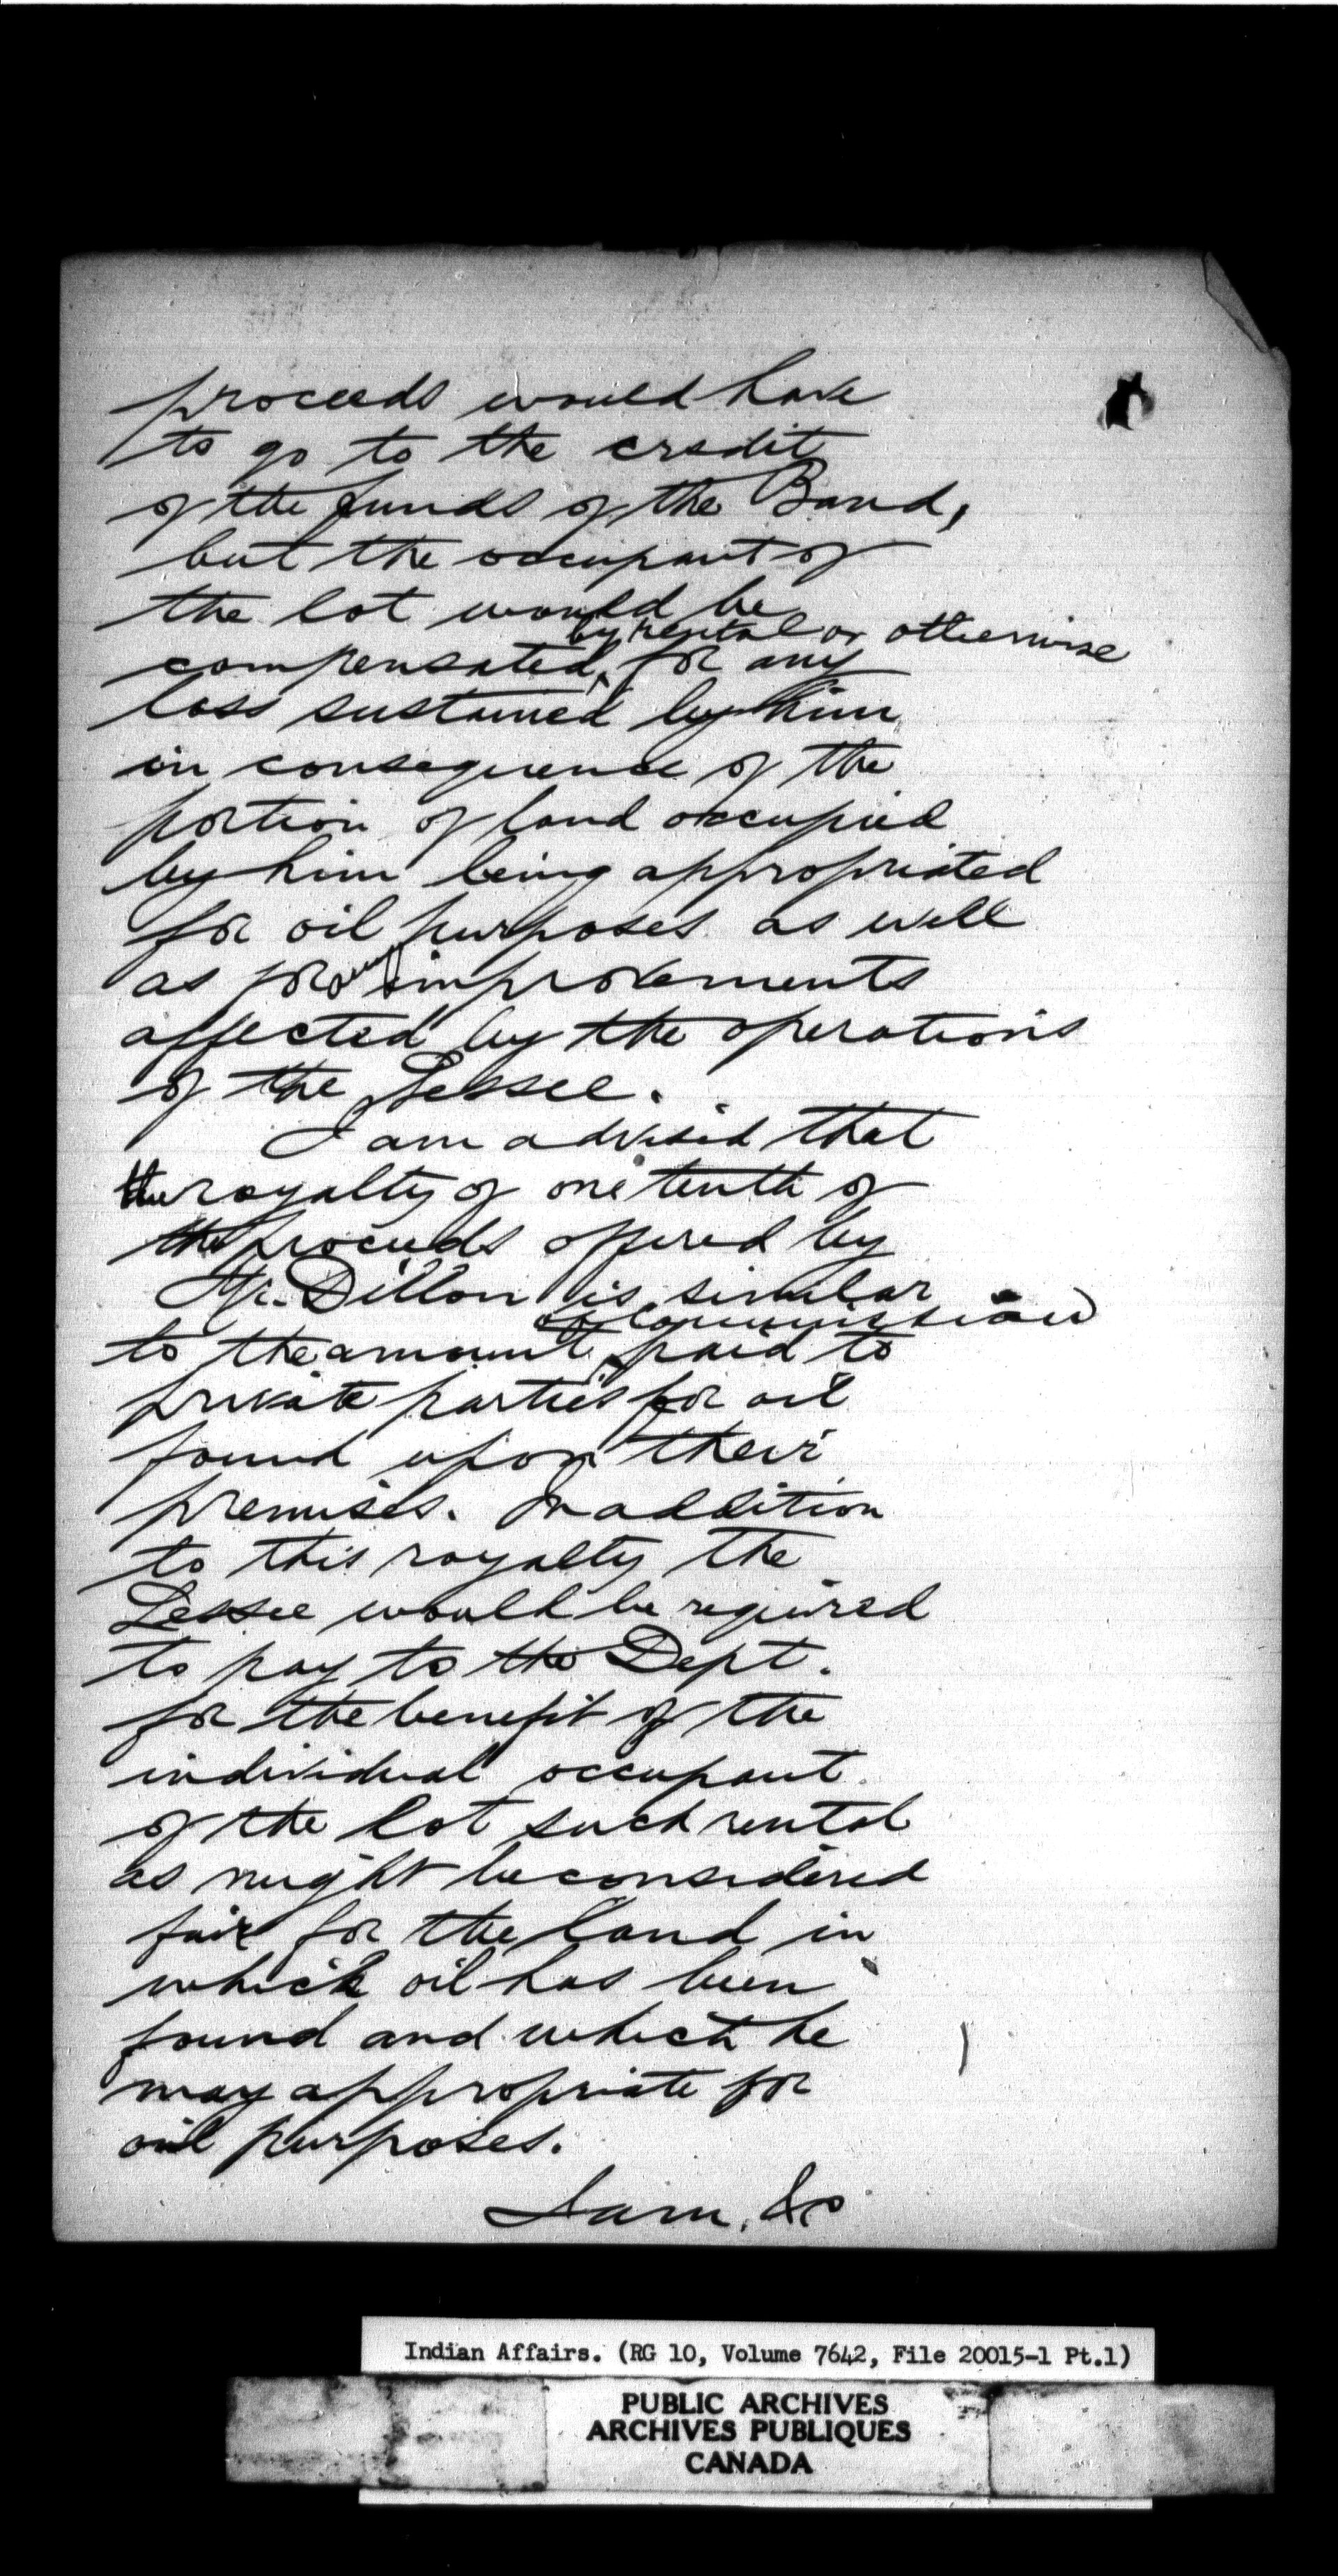 proceeds would have
to go to the credit
of the funds of the Band,
but the occupant of
the lot would be
by rental or otherwise
compensated, for any
loss sustained by him
in consequence of the
portion of land occupied
by him being appropriated
for oil purposes as well
as for any improvements
affected by the operations
of the Lessee.
I am advised that
the royalty of one tenth of
the proceeds offered by
Mr. Dillon is similar
commission
to the amount paid to
private parties for oil
found upon their
premises. In addition
to this royalty the
Lessee would be required
to pay to the Dept.
for the benefit of the
individual occupant
of the lot such rental
as might be considered
fair for the land in
which oil has been
found and which he
may appropriate for
oil purposes.
I am, &c
Indian Affairs. (RG 10, Volume 7642, File 20015-1 Pt.1)
PUBLIC ARCHIVES
ARCHIVES PUBLIQUES
CANADA